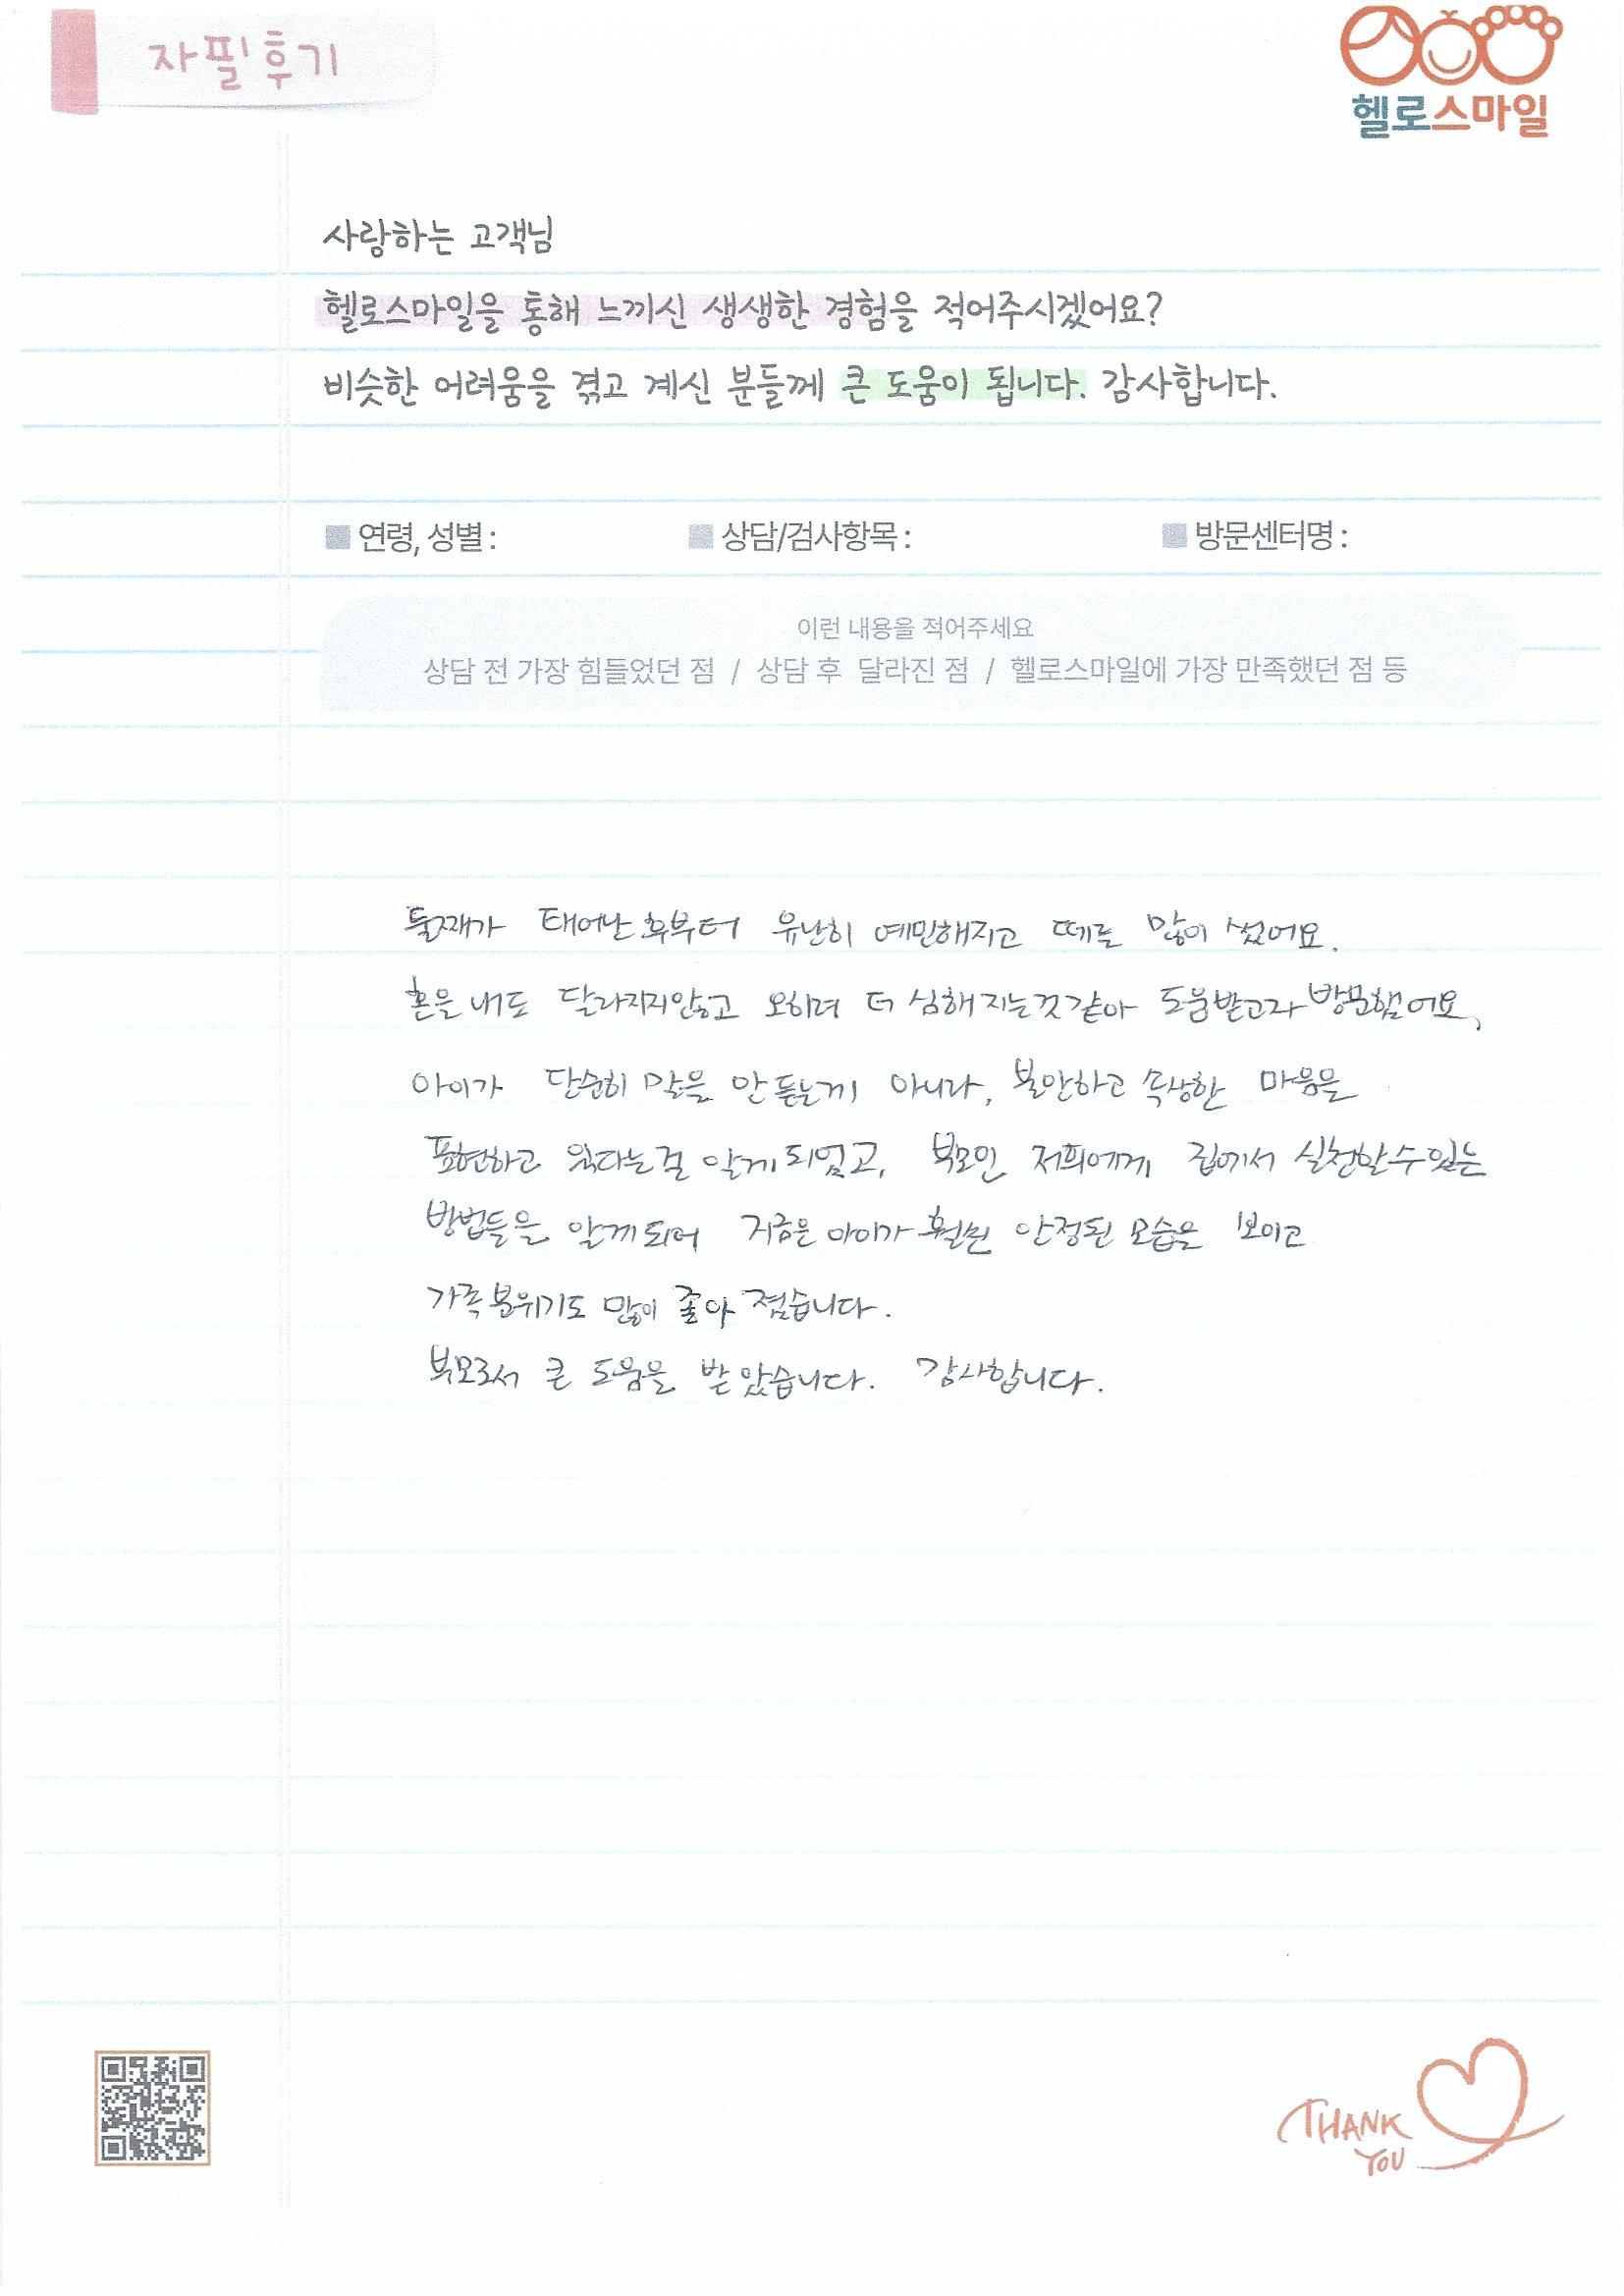 자필후기
헬로스마일
사랑하는 고객님
헬로스마일을 통해 느끼신 생생한 경험을 적어주시겠어요?
비슷한 어려움을 겪고 계신 분들께 큰 도움이 됩니다. 감사합니다.
■ 연령, 성별 : ■ 상담/검사항목 : ■ 방문센터명 :
이런 내용을 적어주세요
상담 전 가장 힘들었던 점 / 상담 후 달라진 점 / 헬로스마일에 가장 만족했던 점 등
둘째가 태어난 후부터 유난히 예민해지고 떼를 많이 썼어요.
혼을 내도 달라지지않고 오히려 더 심해지는것 같아 도움받고자 방문했어요,
아이가 단순히 말을 안 듣는게 아니라, 불안하고 속상한 마음을
표현하고 있다는걸 알게 되었고, 부모인 저희에게 집에서 실천할수있는
방법들을 알게되어 지금은 아이가 훨씬 안정된 모습을 보이고
가족분위기도 많이 좋아 졌습니다.
부모로서 큰 도움을 받았습니다. 감사합니다.
THANK
YOU